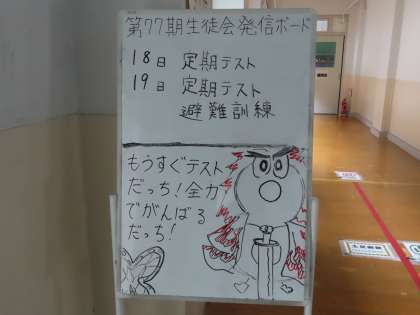 第77期生徒会発信ボード
18日 定期テスト
19日 定期テスト
避難訓練
もうすぐテスト
だっち!全力
でがんばる
だっち!